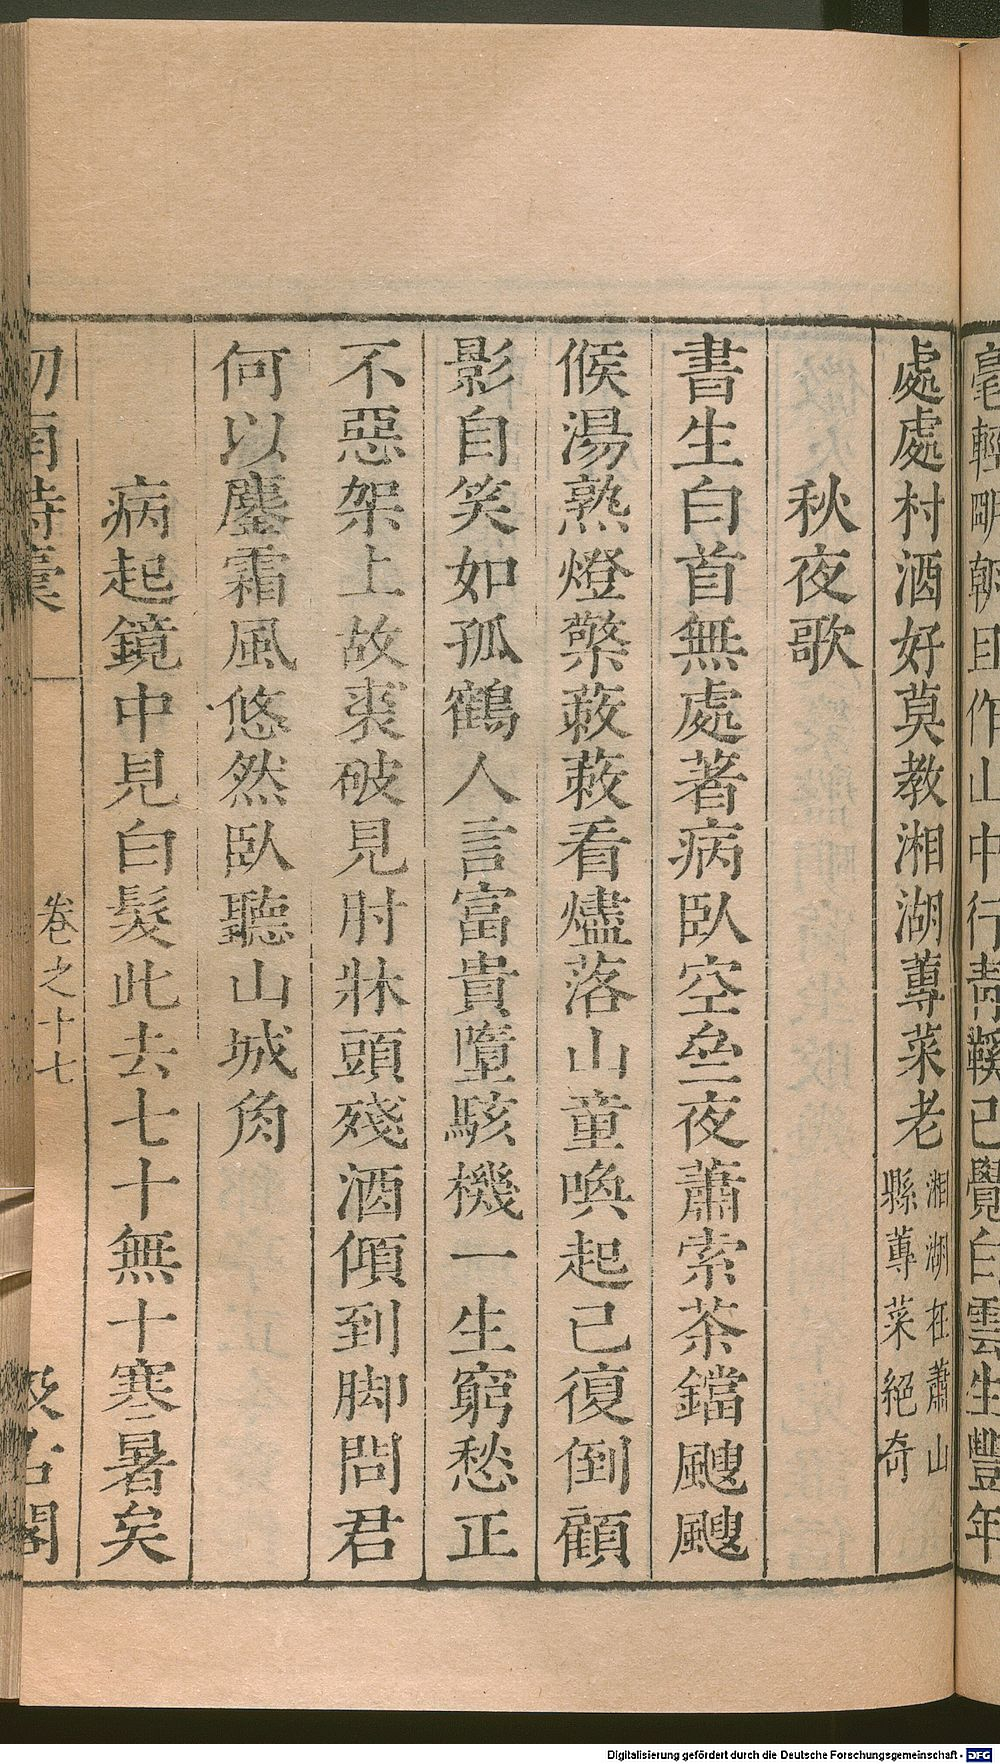 毫輕明朝且作山中行青鞵已覺白雲生豐年
處處村酒好莫教湘湖蓴菜老湘湖在蕭山
縣蓴菜絕奇
秋夜歌
書生白首無處著病臥空壘夜蕭索茶鐺颼颼
候湯熟燈檠蔌蔌看燼落山童喚起已復倒顧
影自笑如孤鶴人言富貴墮駭機一生窮愁正
不惡架上故裘破見肘牀頭殘酒傾到脚問君
何以鏖霜風悠然臥聽山城角
病起鏡中見白髮此去七十無十寒暑矣
劒南詩稾
卷之十七
汲古閣
Digitalisierung gefördert durch die Deutsche Forschungsgemeinschaft - DFG